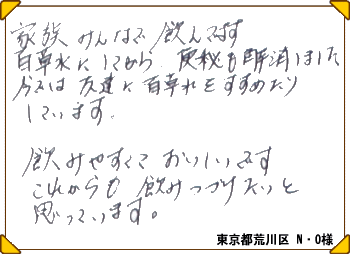 家族みんなで飲んでます
百草水にしてから、便秘も解消しました
今では友達に百草水をすすめたり
しています。
飲みやすくておいしいです
これからも飲みつづけたいと
思っています。
東京都荒川区 N・O様